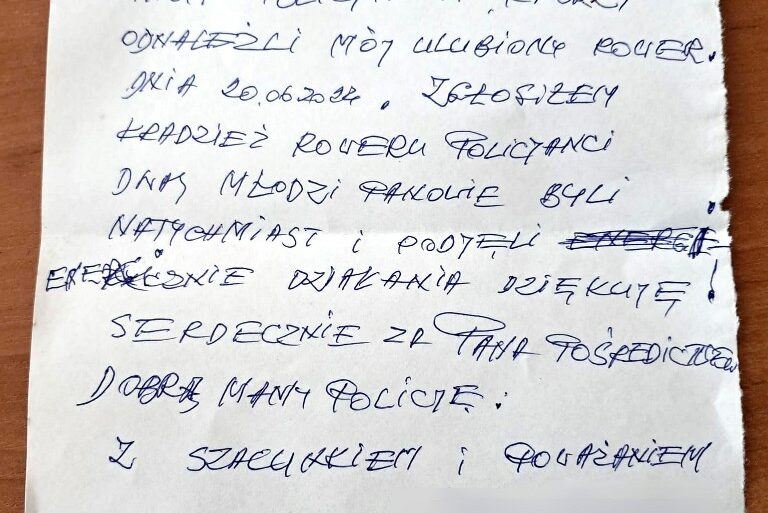 ODNALEŹLI MÓJ ULUBIONY ROWER.
DNIA 20.06.2024. ZGŁOSIŁEM
KRADZIEŻ ROWERU POLICJANCI
DWAJ MŁODZI PANOWIE BYLI
NATYCHMIAST I PODJĘLI
ENERGICZNIE DZIAŁANIA DZIĘKUJĘ!
SERDECZNIE ZA PANA POŚREDICTWEM
DOBRĄ MAMY POLICJĘ.
Z SZACUNKIEM i POWAŻANIEM